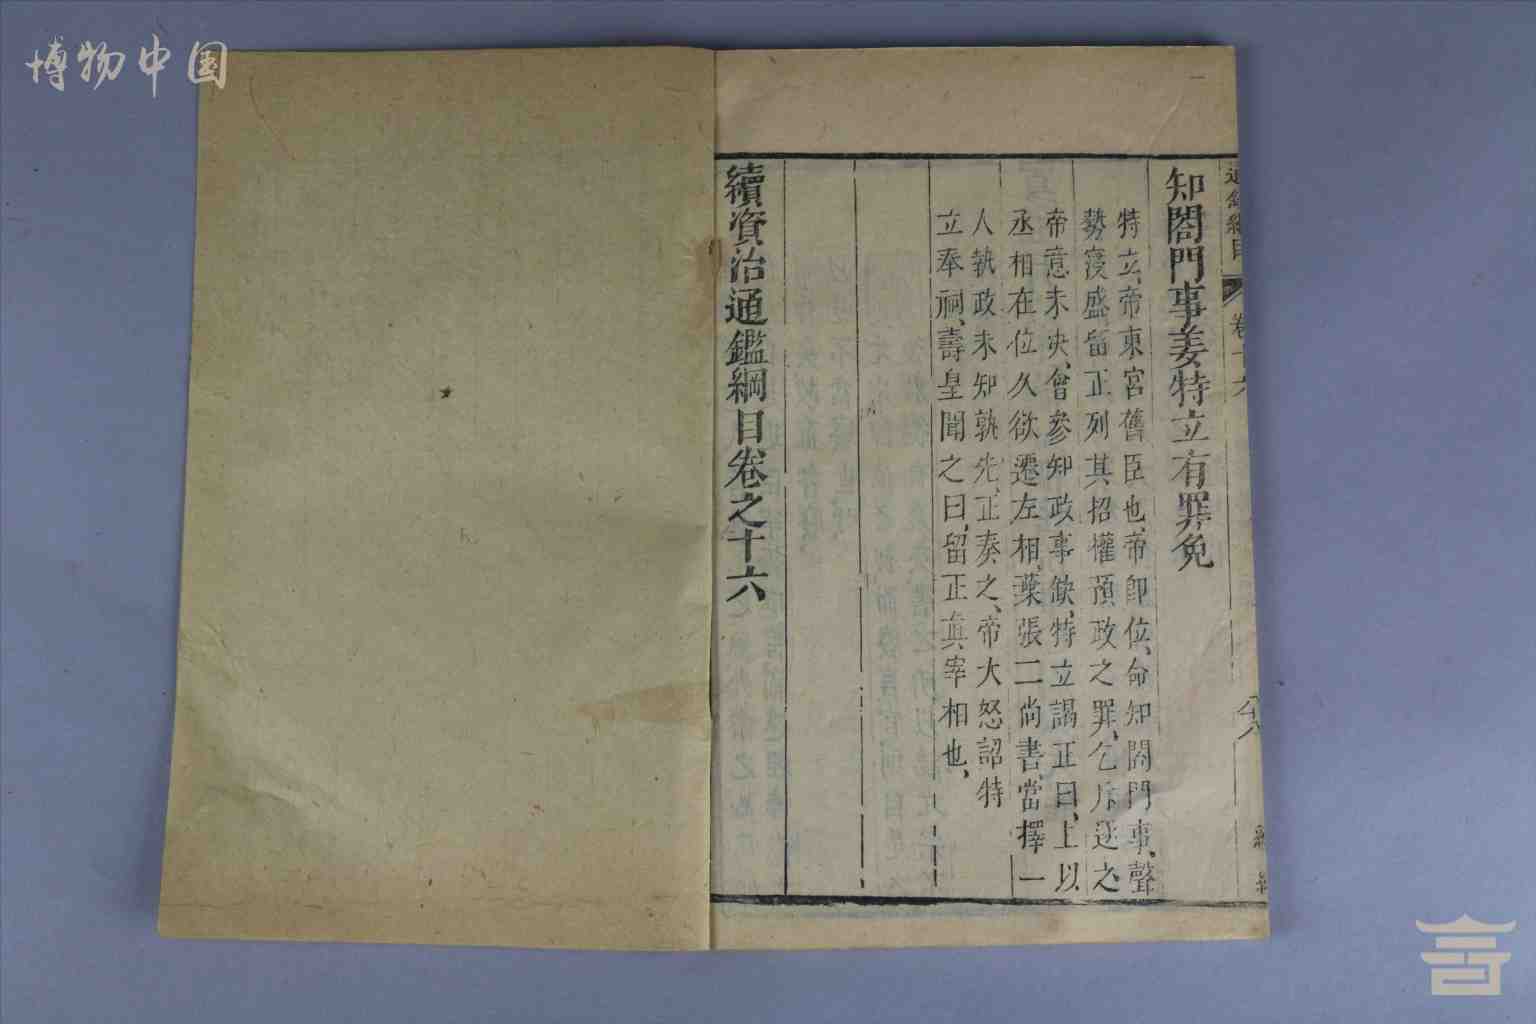 博物中国
通鑑綱目 卷十六
知閤門事姜特立有罪免
特立、帝東宮舊臣也、帝即位、命知閤門事、聲
勢寖盛留正列其招權預政之罪、乞斥逐之
帝意未决、會參知政事缺、特立謁正曰、上以
丞相在位久欲遷左相、葉張二尚書、當擇一
人執政未知孰先、正奏之、帝大怒詔特
立奉祠、壽皇聞之曰、留正真宰相也、
續資治通鑑綱目卷之十六